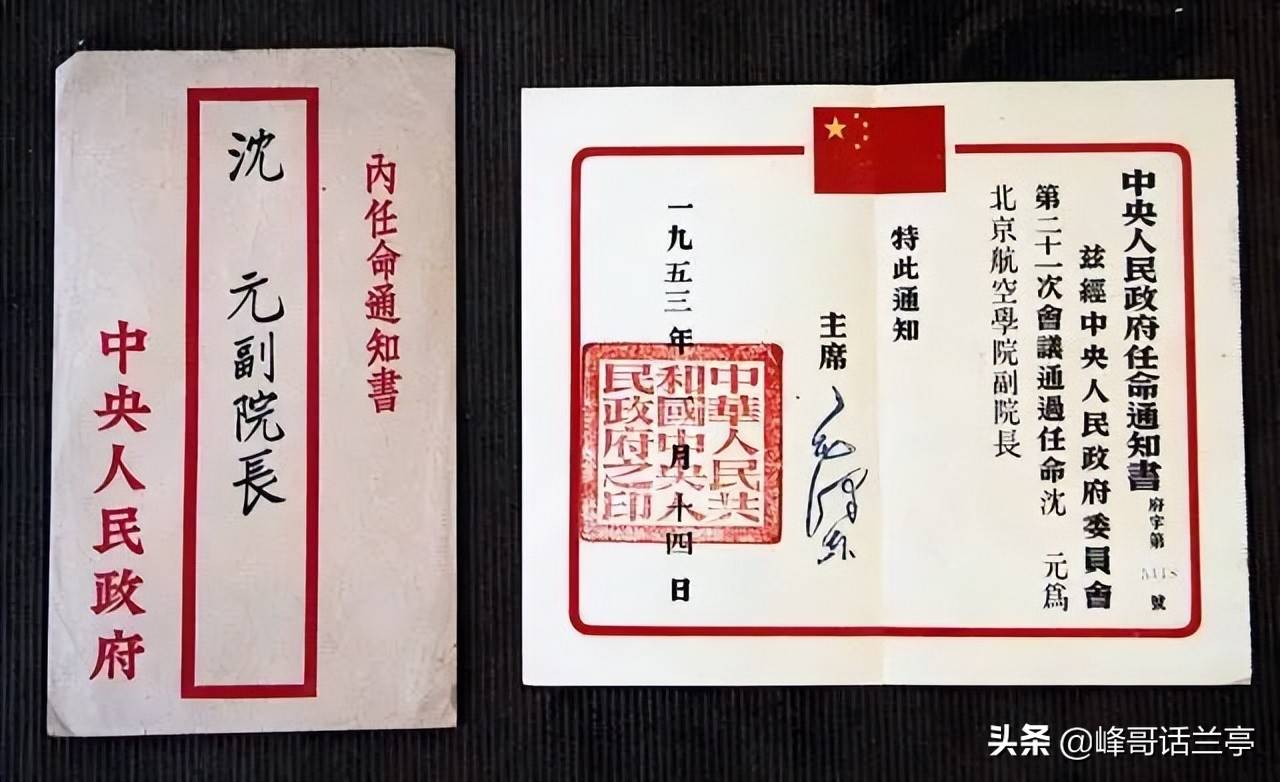 內任命通知書
沈 元副院長
中央人民政府
中央人民政府任命通知書 府字第 號
兹經中央人民政府委員會
第二十一次會議通過任命沈 元爲
北京航空學院副院長
特此通知
主席 毛澤东
一九五三年 月十四日
中華人民共
和國中央人
民政府之印
头条 @峰哥话兰亭